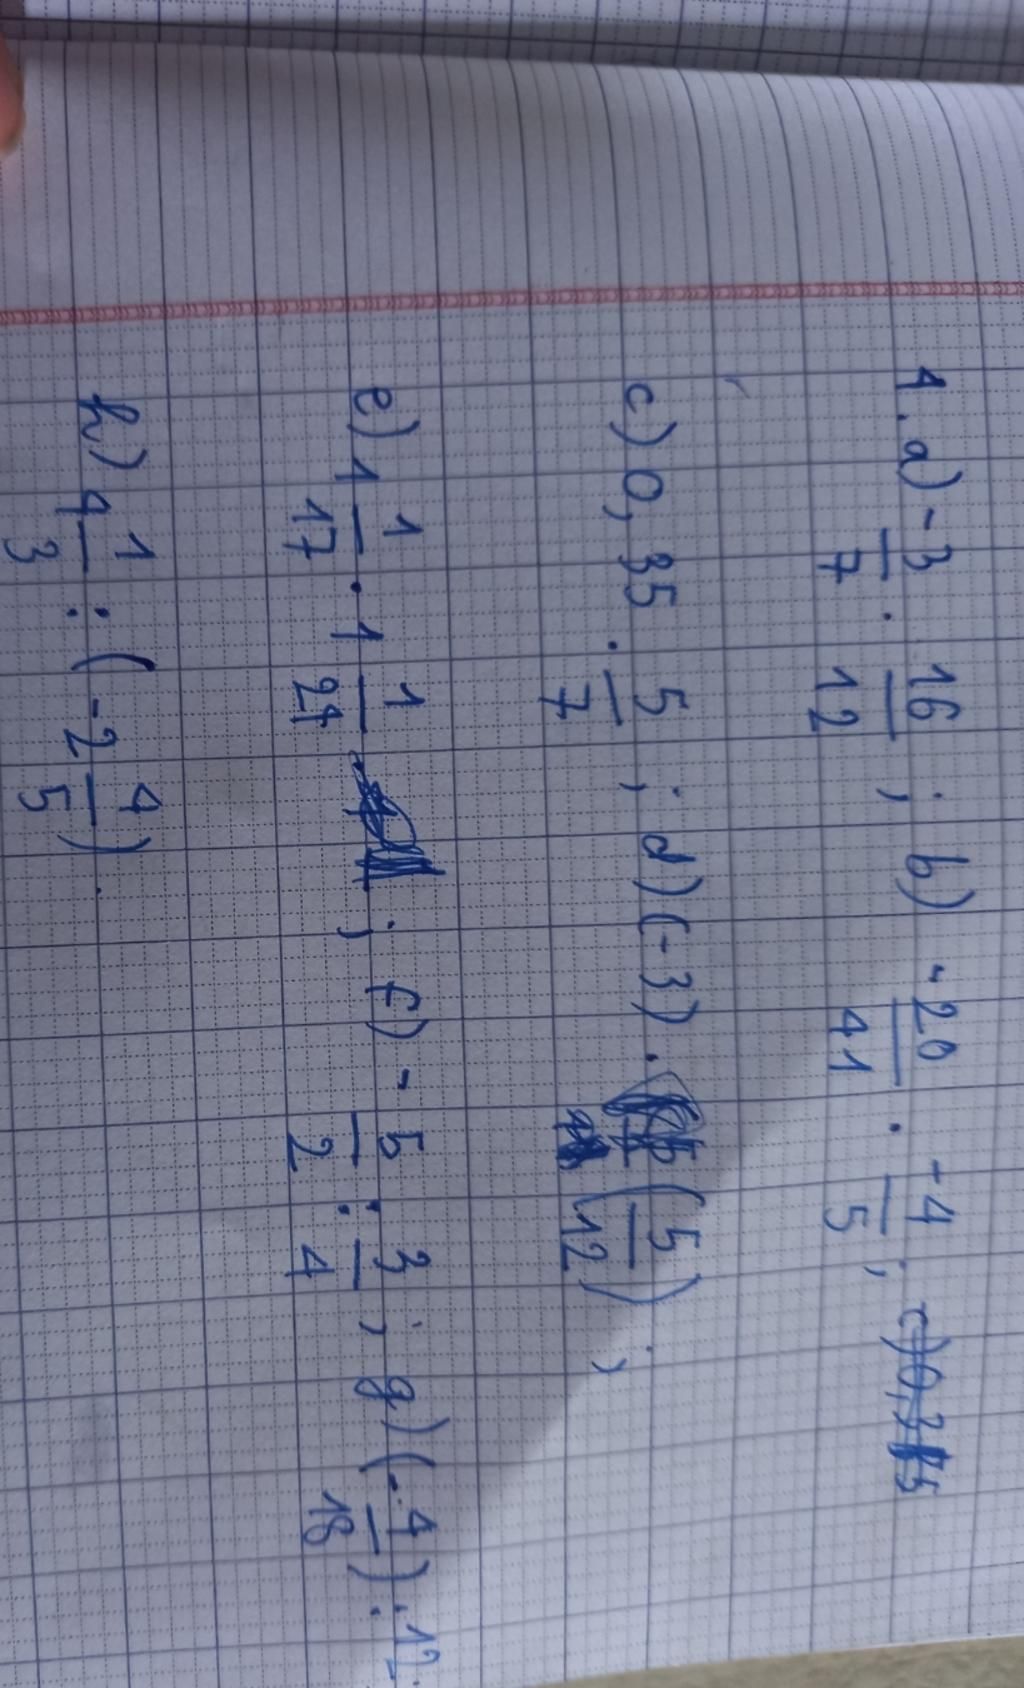 1. a) -3/7 . 16/12 ; b) -20/41 . -4/5 ; c) 0,35
c) 0,35 . 5/7 ; d) (-3) . (5/12) ;
e) 1 1/17 . 1 1/24 ; f) - 5/2 : 3/4 ; g) (- 4/18) : 12
h) 1 1/3 : (-2 4/5) .